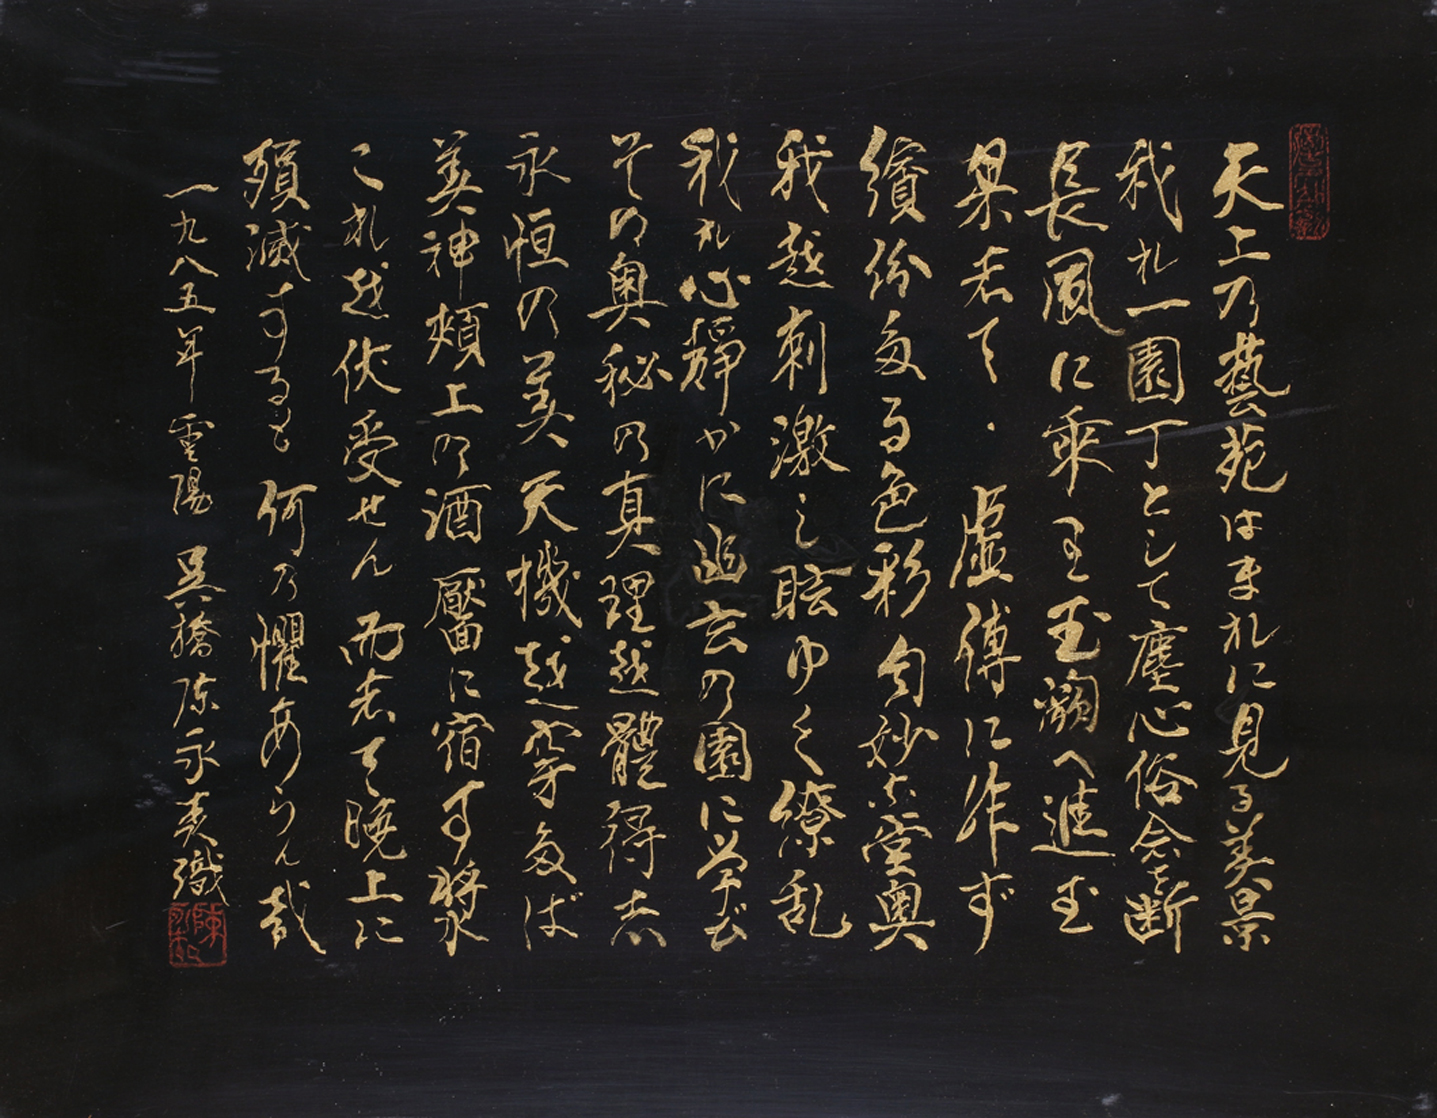 天上の藝苑はまれに見る美景
我れ一園丁として塵心俗念を断
長風に乘り玉瀕へ進む
果志て・虚傳に非ず
繽紛たる色彩匂妙な堂奥
我越刺激し眩ゆく繚乱
我れ心靜かに幽玄の園に学び
その奥秘の真理越體得志
永恒の美天機越窄たば
美神頬上の酒靨に宿す將永
これ越伏受せん而志て晩上に
殞滅するも何の懼あらん哉
一九八五年重陽 吳橋陈永